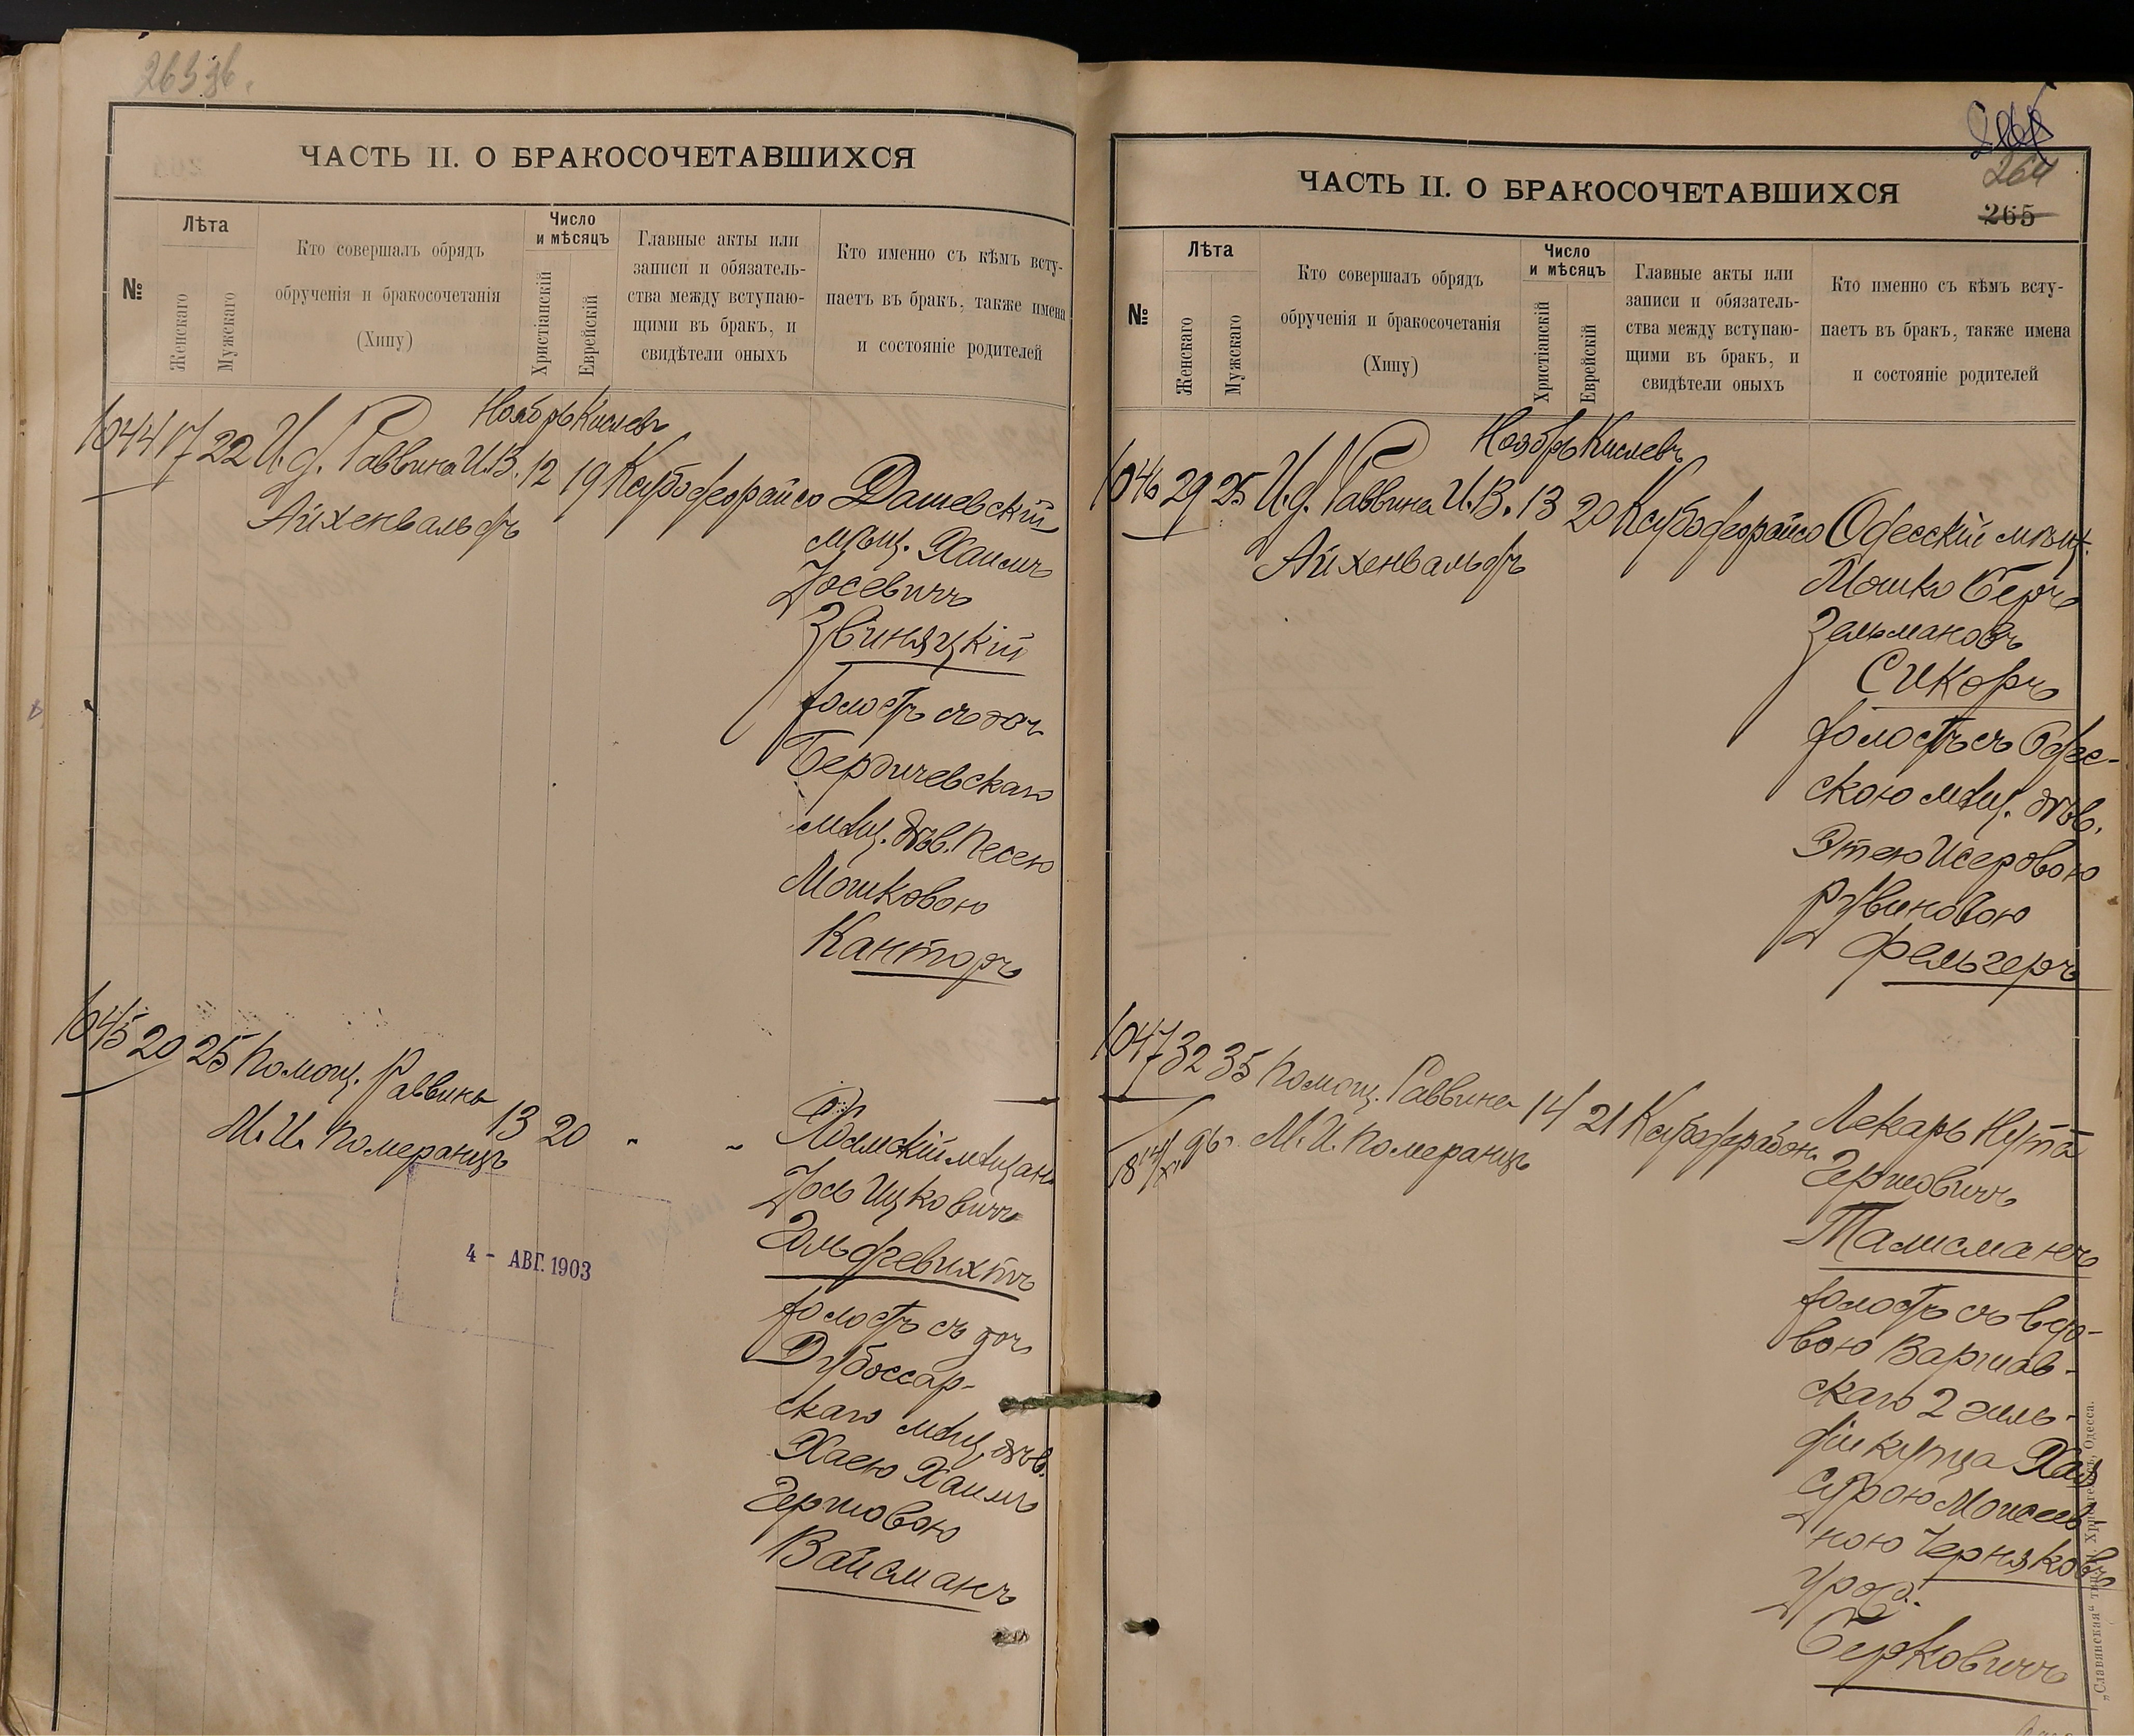 263 об.
ЧАСТЬ II. О БРАКОСОЧЕТАВШИХСЯ
№
Лѣта
Женскаго
Мужскаго
Кто совершалъ обрядъ
обрученія и бракосочетанія
(Хипу)
Число
и мѣсяцъ
Христіанскій
Еврейскій
Главные акты или
записи и обязатель-
ства между вступаю-
щими въ бракъ, и
свидѣтели оныхъ
Кто именно съ кѣмъ всту-
паетъ въ бракъ, также имена
и состояніе родителей
Ноябрь Кислевъ
1044 17 22 И. д. Раввина И. В. 12 19
Айхенвальдъ
Дашевскій
мѣщ. Хаимъ
Іосевичъ
Звиняцкій
холостъ съ доч.
Бердичевскаго
мѣщ. дѣв. Песею
Мошковою
Канторъ
1045 20 25 Помощ. Раввина 13 20 " "
М. И. Померанцъ
4 - АВГ. 1903
мѣщан.
Іось Ицковичъ
холостъ съ доч.
Дубоссар-
скаго мѣщ. дѣв.
Хаею Хаимъ
Гершовою
Вайсманъ
264
265
ЧАСТЬ II. О БРАКОСОЧЕТАВШИХСЯ
№
Лѣта
Женскаго
Мужскаго
Кто совершалъ обрядъ
обрученія и бракосочетанія
(Хипу)
Число
и мѣсяцъ
Христіанскій
Еврейскій
Главные акты или
записи и обязатель-
ства между вступаю-
щими въ бракъ, и
свидѣтели оныхъ
Кто именно съ кѣмъ всту-
паетъ въ бракъ, также имена
и состояніе родителей
Ноябрь Кислевъ
1046 29 25 И. д. Раввина И. В. 13 20
Айхенвальдъ
Одесскій мѣщ.
Мошко Беръ
Зельмановъ
Сикоръ
холостъ съ Одес-
скою мѣщ. дѣв.
Этею Исеровою
Рувиновою
Фельгеръ
1047 32 35 Помощ. Раввина 14 21
18 14/XI 96 г. М. И. Померанцъ
Лекарь Нута
Гершовичъ
Талисманъ
холостъ съ вдо-
вою Варшав-
скаго 2 гиль-
діи купца Хая
Сурою Моисеев-
ною Черняковъ
урожд.
Берковичъ
„Славянская“ тип. Н. Хрисогелосъ, Одесса.